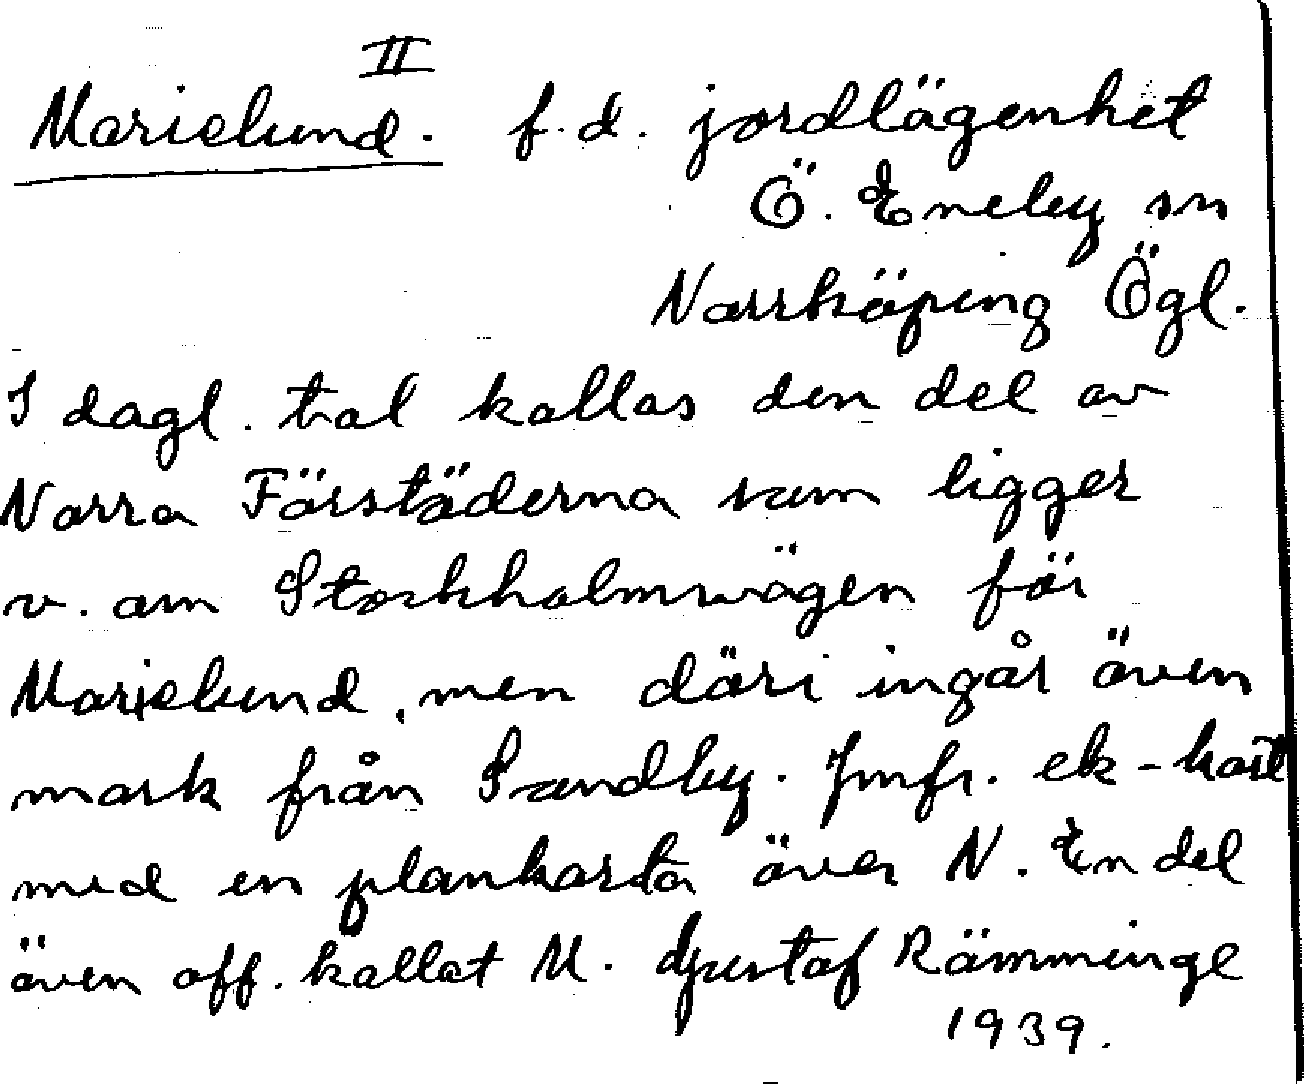 II
Marielund. f.d. jordlägenhet
Ö. Eneby sn
Norrköping Ögl.
I dagl. tal kallas den del av
Norra Förstäderna som ligger
v. om Stockholmsvägen för
Marielund, men däri ingår även
mark från Sandby. Jmfr. ek-kart
med en plankarta över N. En del
även off. kallat M. Gustaf Rämminge
1939.